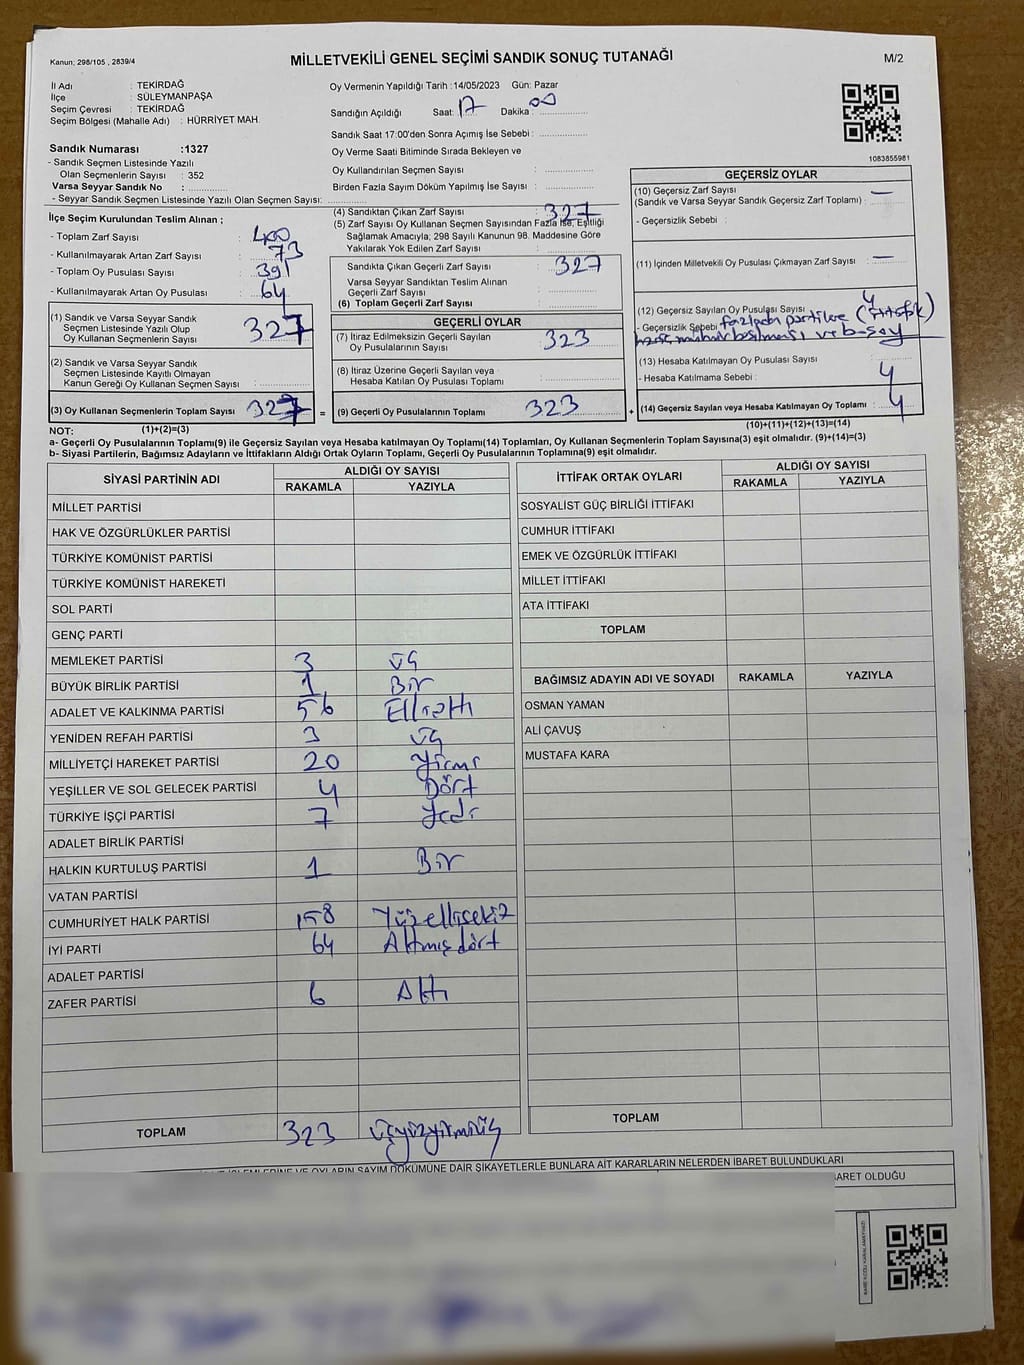 Kanun; 298/105 , 2839/4
MİLLETVEKİLİ GENEL SEÇİMİ SANDIK SONUÇ TUTANAĞI
M/2
İl Adı : TEKİRDAĞ
İlçe : SÜLEYMANPAŞA
Seçim Çevresi : TEKİRDAĞ
Seçim Bölgesi (Mahalle Adı) : HÜRRİYET MAH.
Sandık Numarası :1327
- Sandık Seçmen Listesinde Yazılı
Olan Seçmenlerin Sayısı : 352
Varsa Seyyar Sandık No :
- Seyyar Sandık Seçmen Listesinde Yazılı Olan Seçmen Sayısı:
Oy Vermenin Yapıldığı Tarih :14/05/2023 Gün: Pazar
Sandığın Açıldığı Saat: 17 Dakika: 00
Sandık Saat 17:00'den Sonra Açımış İse Sebebi :
Oy Verme Saati Bitiminde Sırada Bekleyen ve
Oy Kullandırılan Seçmen Sayısı :
Birden Fazla Sayım Döküm Yapılmış İse Sayısı :
1083855981
İlçe Seçim Kurulundan Teslim Alınan ;
- Toplam Zarf Sayısı : 400
- Kullanılmayarak Artan Zarf Sayısı : 73
- Toplam Oy Pusulası Sayısı : 391
- Kullanılmayarak Artan Oy Pusulası : 64
(1) Sandık ve Varsa Seyyar Sandık
Seçmen Listesinde Yazılı Olup
Oy Kullanan Seçmenlerin Sayısı : 327
(2) Sandık ve Varsa Seyyar Sandık
Seçmen Listesinde Kayıtlı Olmayan
Kanun Gereği Oy Kullanan Seçmen Sayısı :
(3) Oy Kullanan Seçmenlerin Toplam Sayısı : 327 =
(4) Sandıktan Çıkan Zarf Sayısı : 327
(5) Zarf Sayısı Oy Kullanan Seçmen Sayısından Fazla İse, Eşitliği
Sağlamak Amacıyla; 298 Sayılı Kanunun 98. Maddesine Göre
Yakılarak Yok Edilen Zarf Sayısı :
Sandıkta Çıkan Geçerli Zarf Sayısı : 327
Varsa Seyyar Sandıktan Teslim Alınan
Geçerli Zarf Sayısı :
(6) Toplam Geçerli Zarf Sayısı :
GEÇERLİ OYLAR
(7) İtiraz Edilmeksizin Geçerli Sayılan
Oy Pusulalarının Sayısı : 323
(8) İtiraz Üzerine Geçerli Sayılan veya
Hesaba Katılan Oy Pusulası Toplamı :
(9) Geçerli Oy Pusulalarının Toplamı : 323 +
GEÇERSİZ OYLAR
(10) Geçersiz Zarf Sayısı : —
(Sandık ve Varsa Seyyar Sandık Geçersiz Zarf Toplamı)
- Geçersizlik Sebebi :
(11) İçinden Milletvekili Oy Pusulası Çıkmayan Zarf Sayısı : —
(12) Geçersiz Sayılan Oy Pusulası Sayısı : 4
- Geçersizlik Sebebi : fazladan partilere (ittifak)
basılması ve
(13) Hesaba Katılmayan Oy Pusulası Sayısı : 4
- Hesaba Katılmama Sebebi :
(14) Geçersiz Sayılan veya Hesaba Katılmayan Oy Toplamı : 4
NOT: (1)+(2)=(3)
(10)+(11)+(12)+(13)=(14)
a- Geçerli Oy Pusulalarının Toplamı(9) ile Geçersiz Sayılan veya Hesaba katılmayan Oy Toplamı(14) Toplamları, Oy Kullanan Seçmenlerin Toplam Sayısına(3) eşit olmalıdır. (9)+(14)=(3)
b- Siyasi Partilerin, Bağımsız Adayların ve İttifakların Aldığı Ortak Oyların Toplamı, Geçerli Oy Pusulalarının Toplamına(9) eşit olmalıdır.
SİYASİ PARTİNİN ADI
ALDIĞI OY SAYISI
RAKAMLA YAZIYLA
MİLLET PARTİSİ
HAK VE ÖZGÜRLÜKLER PARTİSİ
TÜRKİYE KOMÜNİST PARTİSİ
TÜRKİYE KOMÜNİST HAREKETİ
SOL PARTİ
GENÇ PARTİ
MEMLEKET PARTİSİ 3 üç
BÜYÜK BİRLİK PARTİSİ 1 Bir
ADALET VE KALKINMA PARTİSİ 56 Ellialtı
YENİDEN REFAH PARTİSİ 3 üç
MİLLİYETÇİ HAREKET PARTİSİ 20 Yirmi
YEŞİLLER VE SOL GELECEK PARTİSİ 4 Dört
TÜRKİYE İŞÇİ PARTİSİ 7 Yedi
ADALET BİRLİK PARTİSİ
HALKIN KURTULUŞ PARTİSİ 1 Bir
VATAN PARTİSİ
CUMHURİYET HALK PARTİSİ 158 Yüzellisekiz
İYİ PARTİ 64 Altmışdört
ADALET PARTİSİ
ZAFER PARTİSİ 6 Altı
TOPLAM 323 üçyüzyirmiüç
İTTİFAK ORTAK OYLARI
ALDIĞI OY SAYISI
RAKAMLA YAZIYLA
SOSYALİST GÜÇ BİRLİĞİ İTTİFAKI
CUMHUR İTTİFAKI
EMEK VE ÖZGÜRLÜK İTTİFAKI
MİLLET İTTİFAKI
ATA İTTİFAKI
TOPLAM
BAĞIMSIZ ADAYIN ADI VE SOYADI RAKAMLA YAZIYLA
OSMAN YAMAN
ALİ ÇAVUŞ
MUSTAFA KARA
TOPLAM
İŞLEMLERİNE VE OYLARIN SAYIM DÖKÜMÜNE DAİR ŞİKAYETLERLE BUNLARA AİT KARARLARIN NELERDEN İBARET BULUNDUKLARI
BARET OLDUĞU